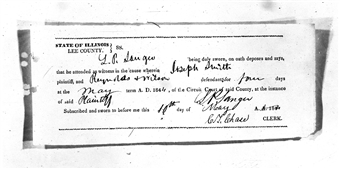 STATE OF ILLINOIS, } SS.
LEE COUNTY.
L. P. Sanger being duly sworn, on oath deposes and says,
that he attended as witness in the cause wherein Joseph Smith
plaintiff and Reynolds & Wilson defendants for four days
at the May term A. D. 1844, of the Circuit Court of said County, at the instance
of said Plaintiff L. P. Sanger
Subscribed and sworn to before me this 10th day of May A. D. 184
CLERK.